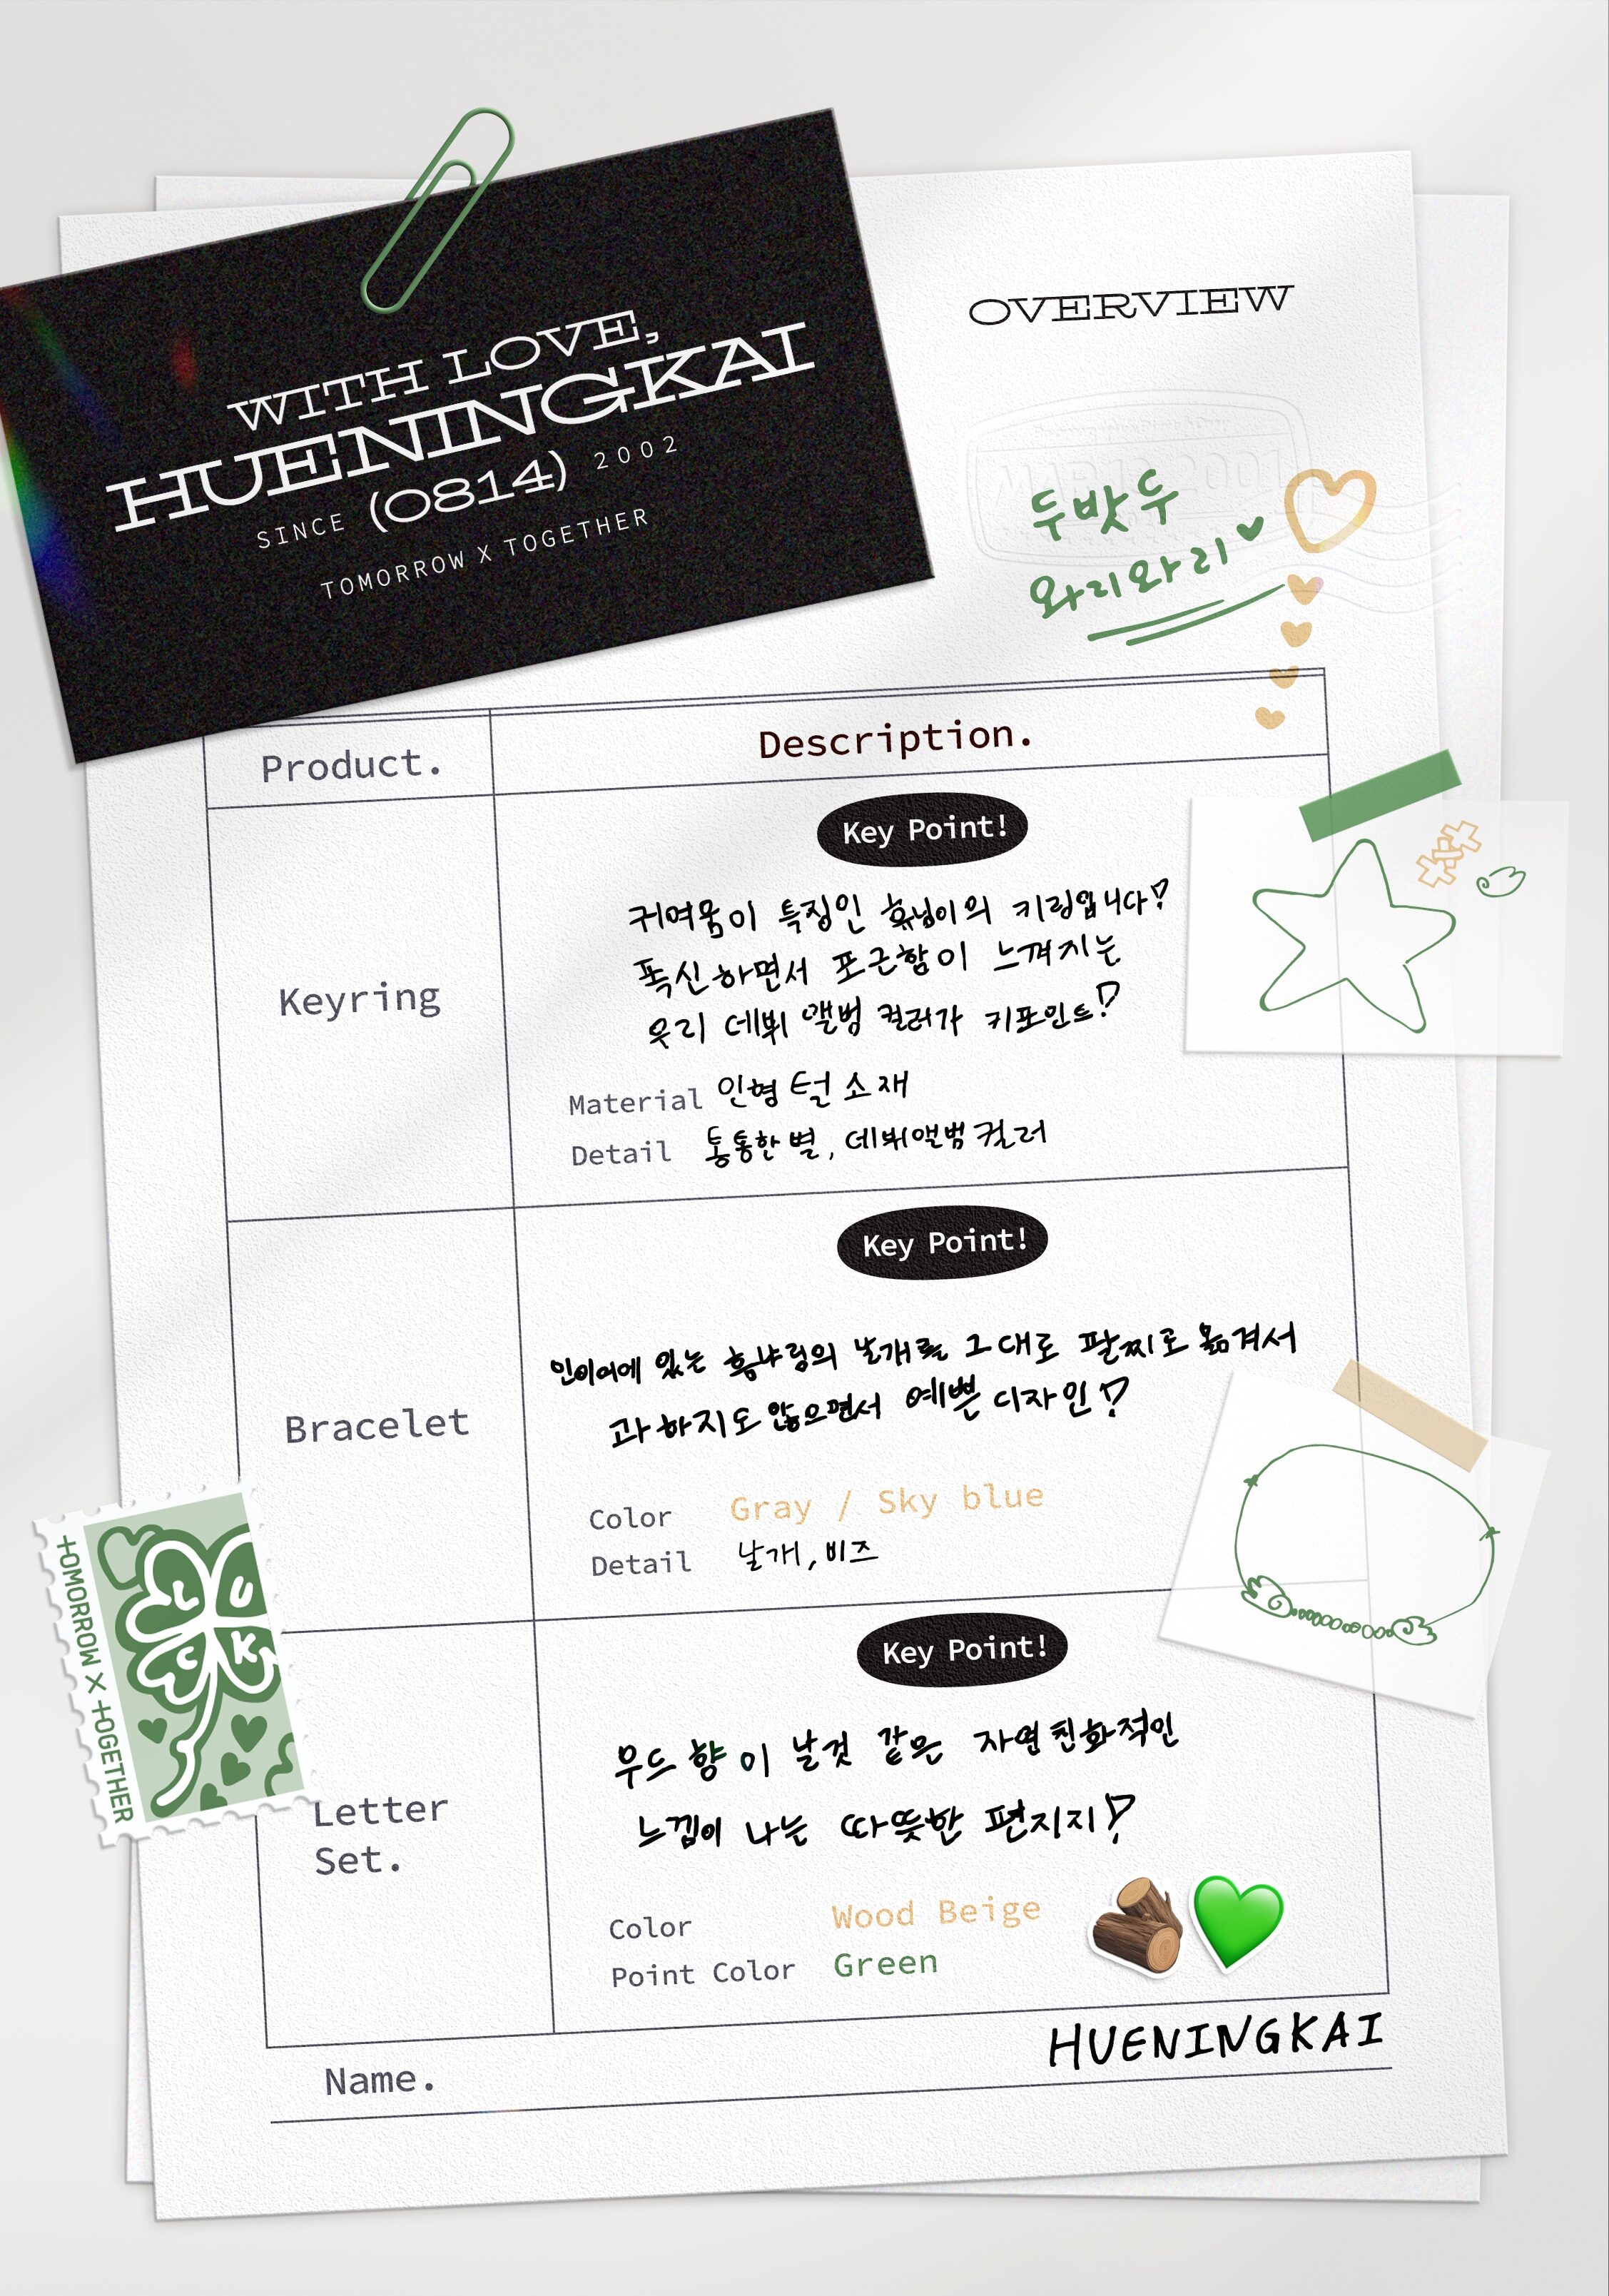 WITH LOVE,
HUENINGKAI
SINCE (0814) 2002
TOMORROW X TOGETHER
OVERVIEW
MAR 13 2001
두밧두
와리와리
Product.
Description.
Keyring
Key Point!
귀여움이 특징인 휴닝이의 키링입니다!
폭신하면서 포근함이 느껴지는
우리 데뷔 앨범 컬러가 키포인트!
Material 인형 털 소재
Detail 통통한 별, 데뷔앨범 컬러
Bracelet
Key Point!
인이어에 있는 흄냐링의 날개를 그대로 팔찌로 옮겨서
과하지도 않으면서 예쁜 디자인!
Color Gray / Sky blue
Detail 날개, 비즈
TOMORROW X TOGETHER
LUCK
Letter
Set.
Key Point!
우드 향이 날것 같은 자연친화적인
느낌이 나는 따뜻한 편지지!
Color Wood Beige
Point Color Green
Name. HUENINGKAI